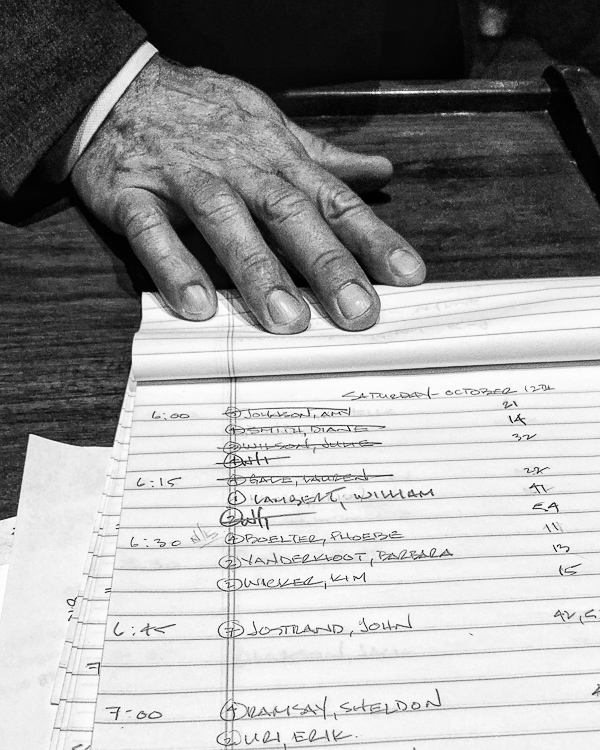 SATURDAY - OCTOBER 12TH
6:00 JOHNSON, ANN 21
SMITH, DIANE 14
WILSON, JULIE 32
W/I
6:15 GALE, LAUREN 22
① LAMBERT, WILLIAM 41
② W/I
6:30 N/S BOELTER, PHOEBE 54
② VANDERKLOOT, BARBARA 11
② WICKER, KIM 13
15
6:45 ⑦ JOSTRAND, JOHN 42,
7:00 ④ RAMSAY, SHELDON
② URI, ERIK.